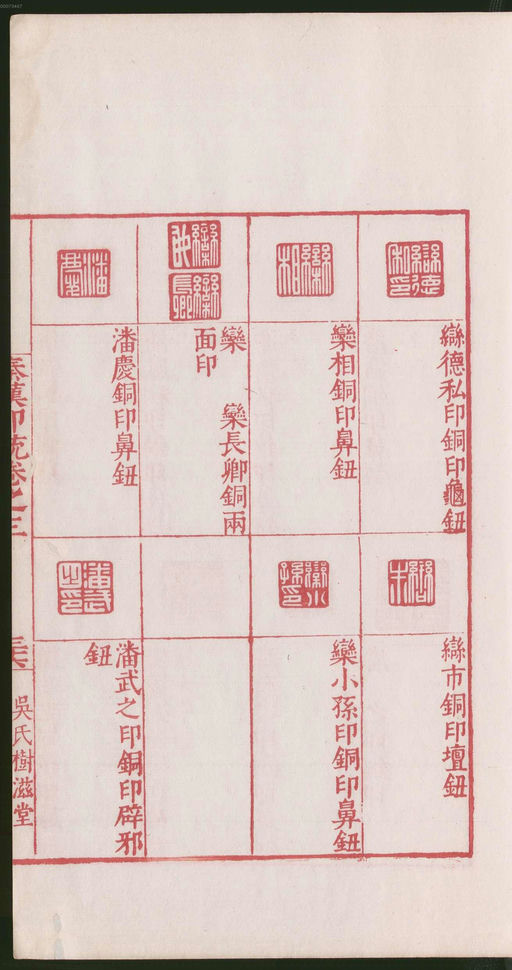 00073467
䜌德私印銅印龜鈕
欒相銅印鼻鈕
欒　　欒長卿銅兩
面印
潘慶銅印鼻鈕
䜌市銅印壇鈕
欒小孫印銅印鼻鈕
潘武之印銅印辟邪
鈕
秦漢印統卷之三
吳氏樹滋堂